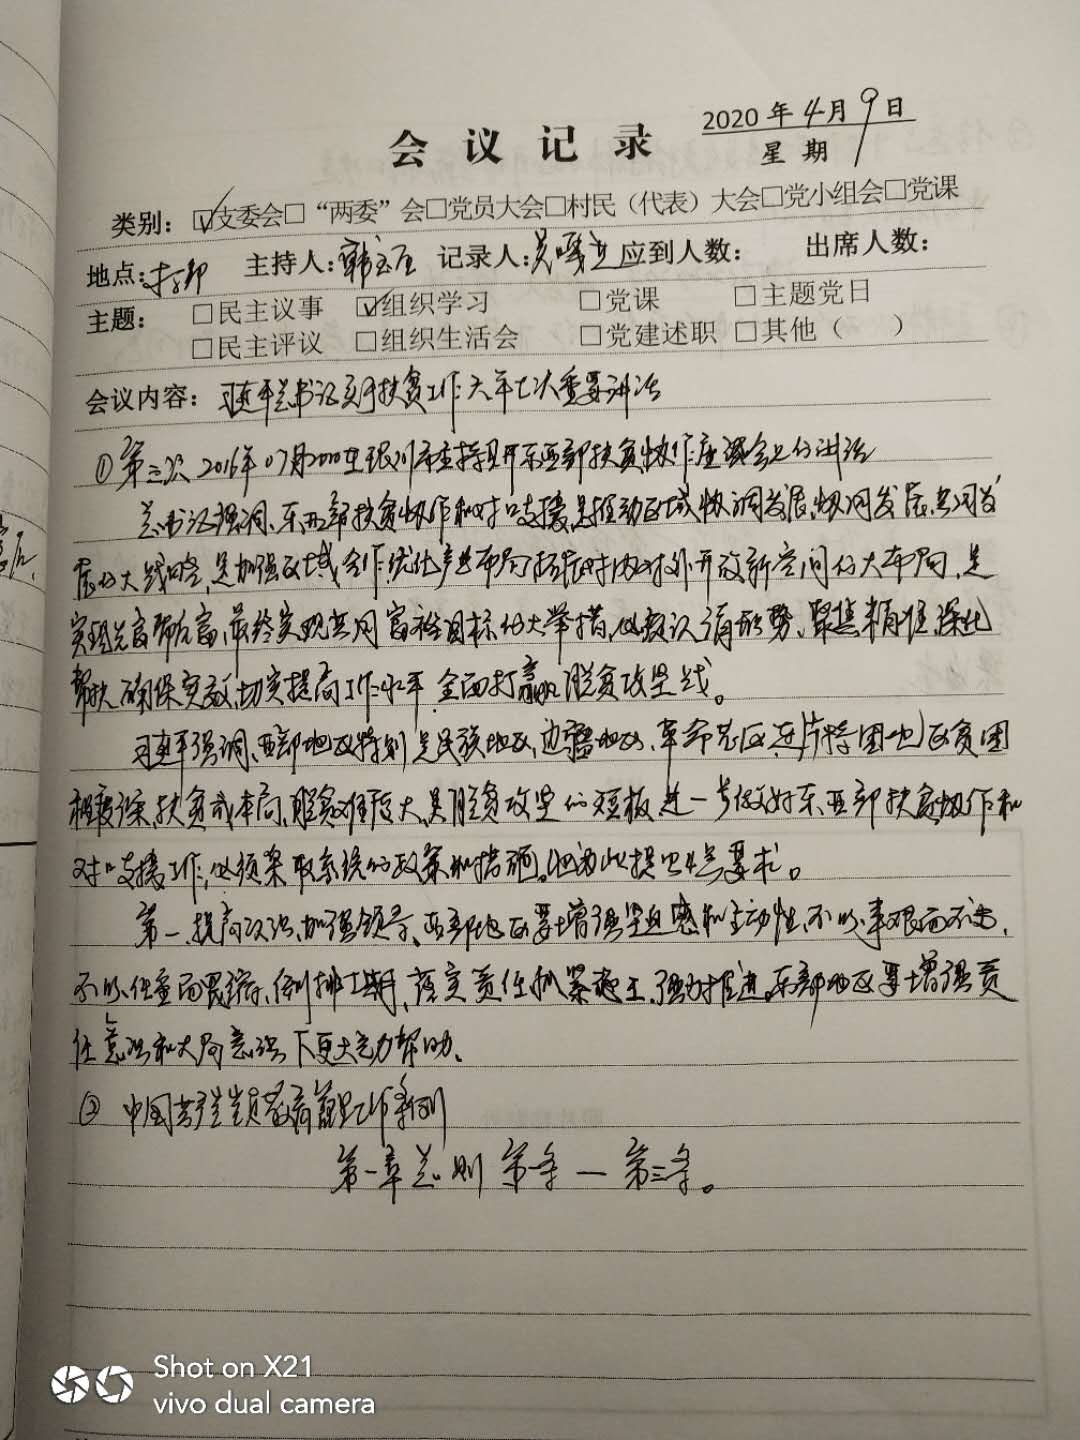 会议记录
2020年4月9日
星期
类别：☑支委会□“两委”会□党员大会□村民（代表）大会□党小组会□党课
地点：村部 主持人：韩 记录人：吴 应到人数： 出席人数：
主题： □民主议事 ☑组织学习 □党课 □主题党日
□民主评议 □组织生活会 □党建述职 □其他（ ）
会议内容：习近平总书记关于扶贫工作六年七次重要讲话
①第三次2016年07月20日在银川市主持召开东西部扶贫协作座谈会上的讲话
总书记强调、东西部扶贫协作和对口支援、是推动区域协调发展、协同发展、共同发
展的大战略、是加强区域合作、优化产业布局、拓展对内对外开放新空间的大布局、是
实现先富帮后富、最终实现共同富裕目标的大举措、必须认清形势、聚焦精准、深化
帮扶、确保实效、切实提高工作水平、全面打赢脱贫攻坚战。
习近平强调、西部地区特别是民族地区、边疆地区、革命老区、连片特困地区贫困
程度深、扶贫成本高、脱贫难度大、是脱贫攻坚的短板、进一步做好东西部扶贫协作和
对口支援工作、必须采取系统的政策和措施。他为此提出4点要求。
第一、提高认识、加强领导、西部地区要增强紧迫感和主动性、不以事艰而不为、
不以任重而畏缩、倒排工期、落实责任、抓紧施工、强力推进。东部地区要增强责
任意识和大局意识、下更大气力帮助、
② 中国共产党党员教育管理工作条例
第一章总则 第一条—第三条。
Shot on X21
vivo dual camera